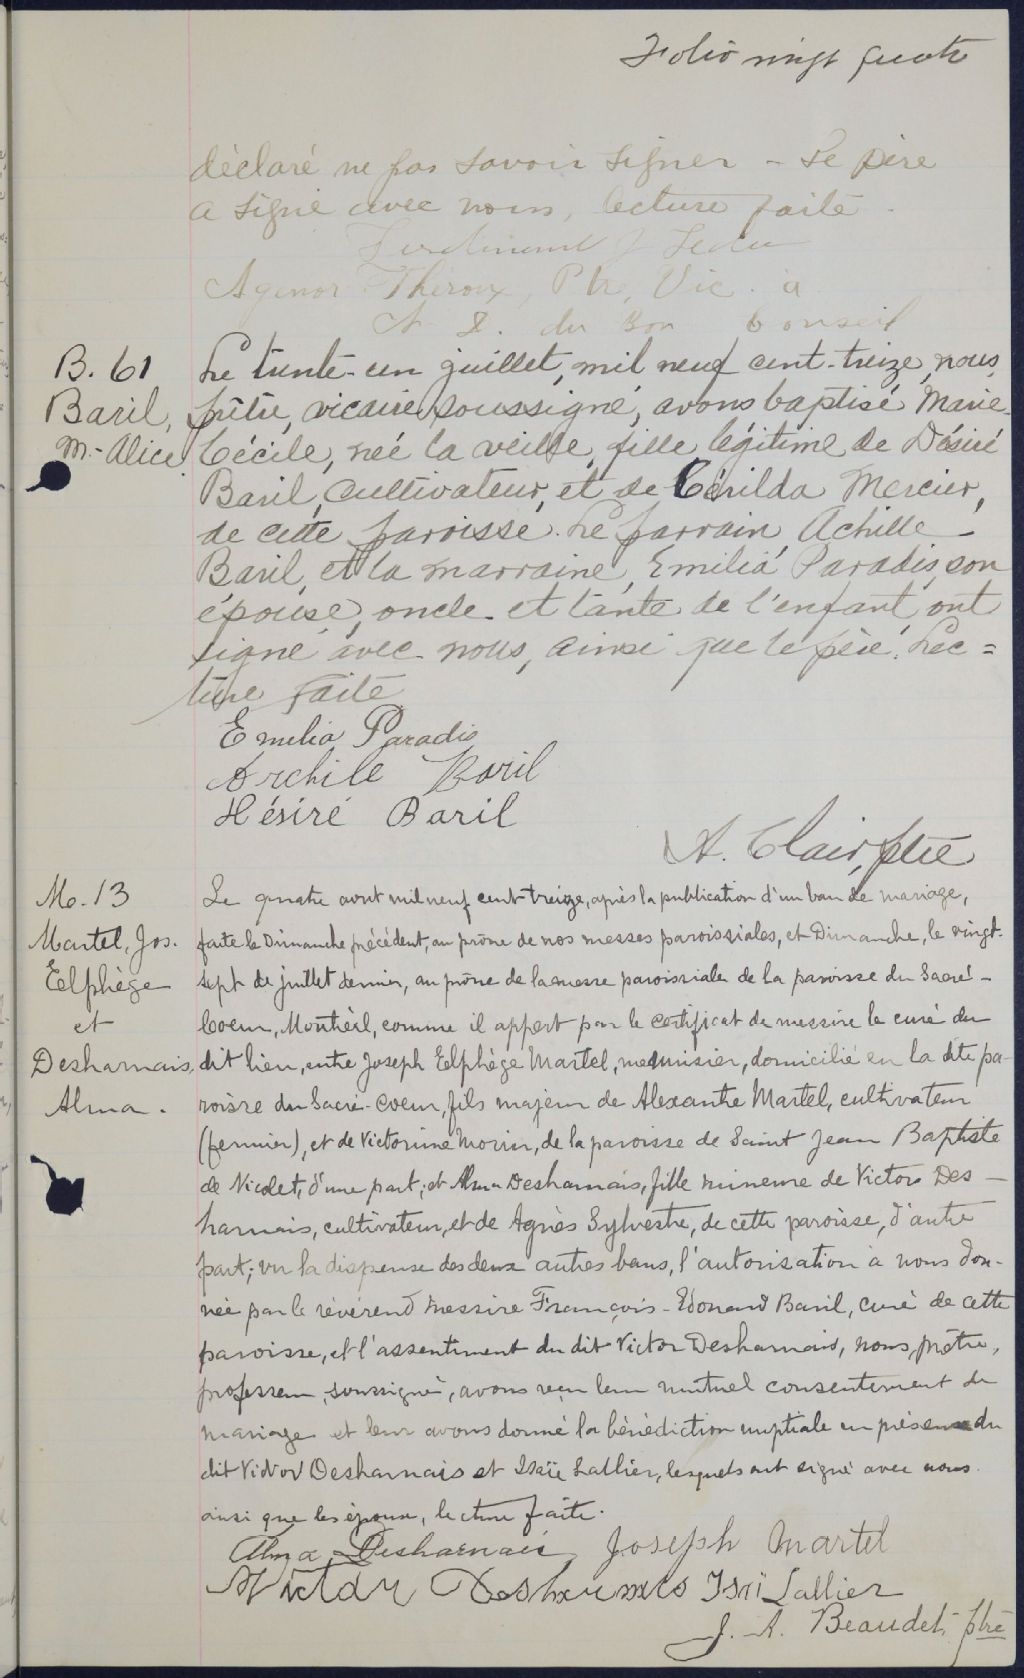 Folio vingt quatre
déclaré ne pas savoir signer - Le père
a signé avec nous, lecture faite.
Ferdinand J
Agenor Theroux, Ptre, Vic. à
N. D. du Bon Conseil
B. 61
Baril,
M.-Alice
Le trente-un juillet, mil neuf cent-treize, nous,
prêtre, vicaire soussigné, avons baptisé Marie-
Cécile, née la veille, fille légitime de Désiré
Baril, cultivateur, et de Cérilda Mercier,
de cette paroisse. Le parrain, Achille
Baril, et la marraine, Emilia Paradis, son
épouse, oncle et tante de l'enfant, ont
signé avec nous, ainsi que le père. Lec=
ture faite
Emilia Paradis
Archile Baril
Désiré Baril
A. Clair, ptre
M. 13
Martel, Jos.
Elphège
et
Desharnais,
Alma.
Le quatre août mil neuf cent treize, après la publication d'un ban de mariage,
faite le Dimanche précédent, au prône de nos messes paroissiales, et Dimanche, le vingt-
sept de juillet dernier, au prône de la messe paroissiale de la paroisse du Sacré-
Coeur, Montréal, comme il appert par le certificat de messire le curé du
dit lieu, entre Joseph Elphège Martel, menuisier, domicilié en la dite pa-
roisse du Sacré-Coeur, fils majeur de Alexandre Martel, cultivateur
(fermier), et de Victorine Morin, de la paroisse de Saint Jean Baptiste
de Nicolet, d'une part; et Alma Desharnais, fille mineure de Victor Des-
harnais, cultivateur, et de Agnès Sylvestre, de cette paroisse, d'autre
part; vu la dispense des deux autres bans, l'autorisation à nous don-
née par le révérend messire François-Edouard Baril, curé de cette
paroisse, et l'assentiment du dit Victor Desharnais, nous, prêtre,
professeur, soussigné, avons reçu leur mutuel consentement de
mariage et leur avons donné la bénédiction nuptiale en présence du
dit Victor Desharnais et Isaïe Lallier, lesquels ont signé avec nous
ainsi que les époux, lecture faite.
Alma Desharnais Joseph Martel
Victor Desharnais Isaï Lallier
J. A. Beaudet, ptre